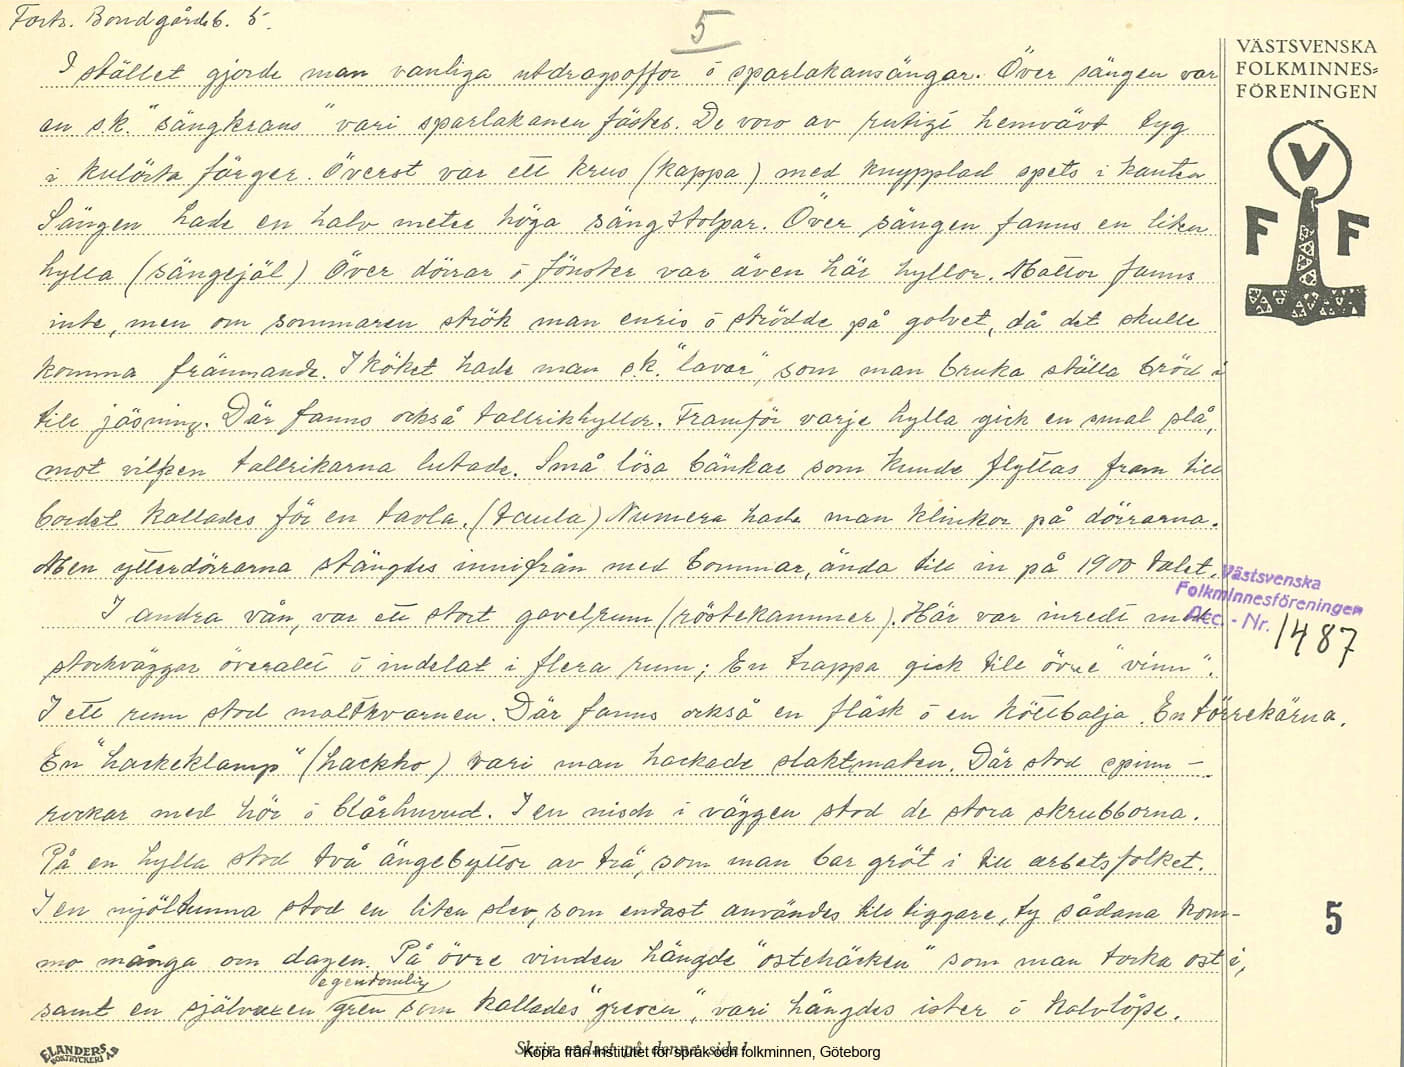 Forts. Bondgårdsb. 5.
5
VÄSTSVENSKA
FOLKMINNES=
FÖRENINGEN
I stället gjorde man vanliga utdragsoffor o sparlakansängar. Över sängen var
en s.k. "sängkrans" vari sparlakanen fästes. De voro av rutigt hemvävt tyg
i kulörta färger. Överst var ett krus (kappa) med knypplad spets i kanten
Sängen hade en halv meter höga sängstolpar. Över sängen fanns en liten
hylla (sängejäl) Över dörrar o fönster var även här hyllor. Mattor fanns
inte, men om sommaren strök man enris o strödde på golvet, då det skulle
komma främmande. I köket hade man s.k. "lavar", som man bruka ställa bröd i
till jäsning. Där fanns också tallrikhyllor. Framför varje hylla gick en smal slå,
mot vilken tallrikarna lutade. Små lösa bänkar som kunde flyttas fram till
bordet kallades för en tavla. (taula) Numera hade man klinkor på dörrarna.
Men ytterdörrarna stängdes innifrån med bommar, ända till in på 1900 talet.
I andra vån, var ett stort gavelrum (röstekammer). Här var inrett med
stockväggar överallt o indelat i flera rum; En trappa gick till övre "vinn".
I ett rum stod maltkvarnen. Där fanns också en fläsk o en köttbalja. En törrekärna.
En "hackeklamp" (hackho) vari man hackade slaktmaten. Där stod spinn-
rockar med hör o blårhuvud. I en nisch i väggen stod de stora skrubborna.
På en hylla stod två ängebyttor av trä, som man bar gröt i till arbetsfolket.
I en mjöltunna stod en liten slev, som endast användes till tiggare, ty sådana kom-
mo många om dagen. På övre vinden hängde "ostehäcken" som man torka ost i,
egendomlig
samt en självvuxen gren som kallades "greven", vari hängdes ister o kalvlöpe.
V
F F
Västsvenska
Folkminnesföreningen
Acc. - Nr. 1487
5
ELANDERS
BOKTRYCKERI AB
Skriv endast på denna sida!
Kopia från Institutet för språk och folkminnen, Göteborg